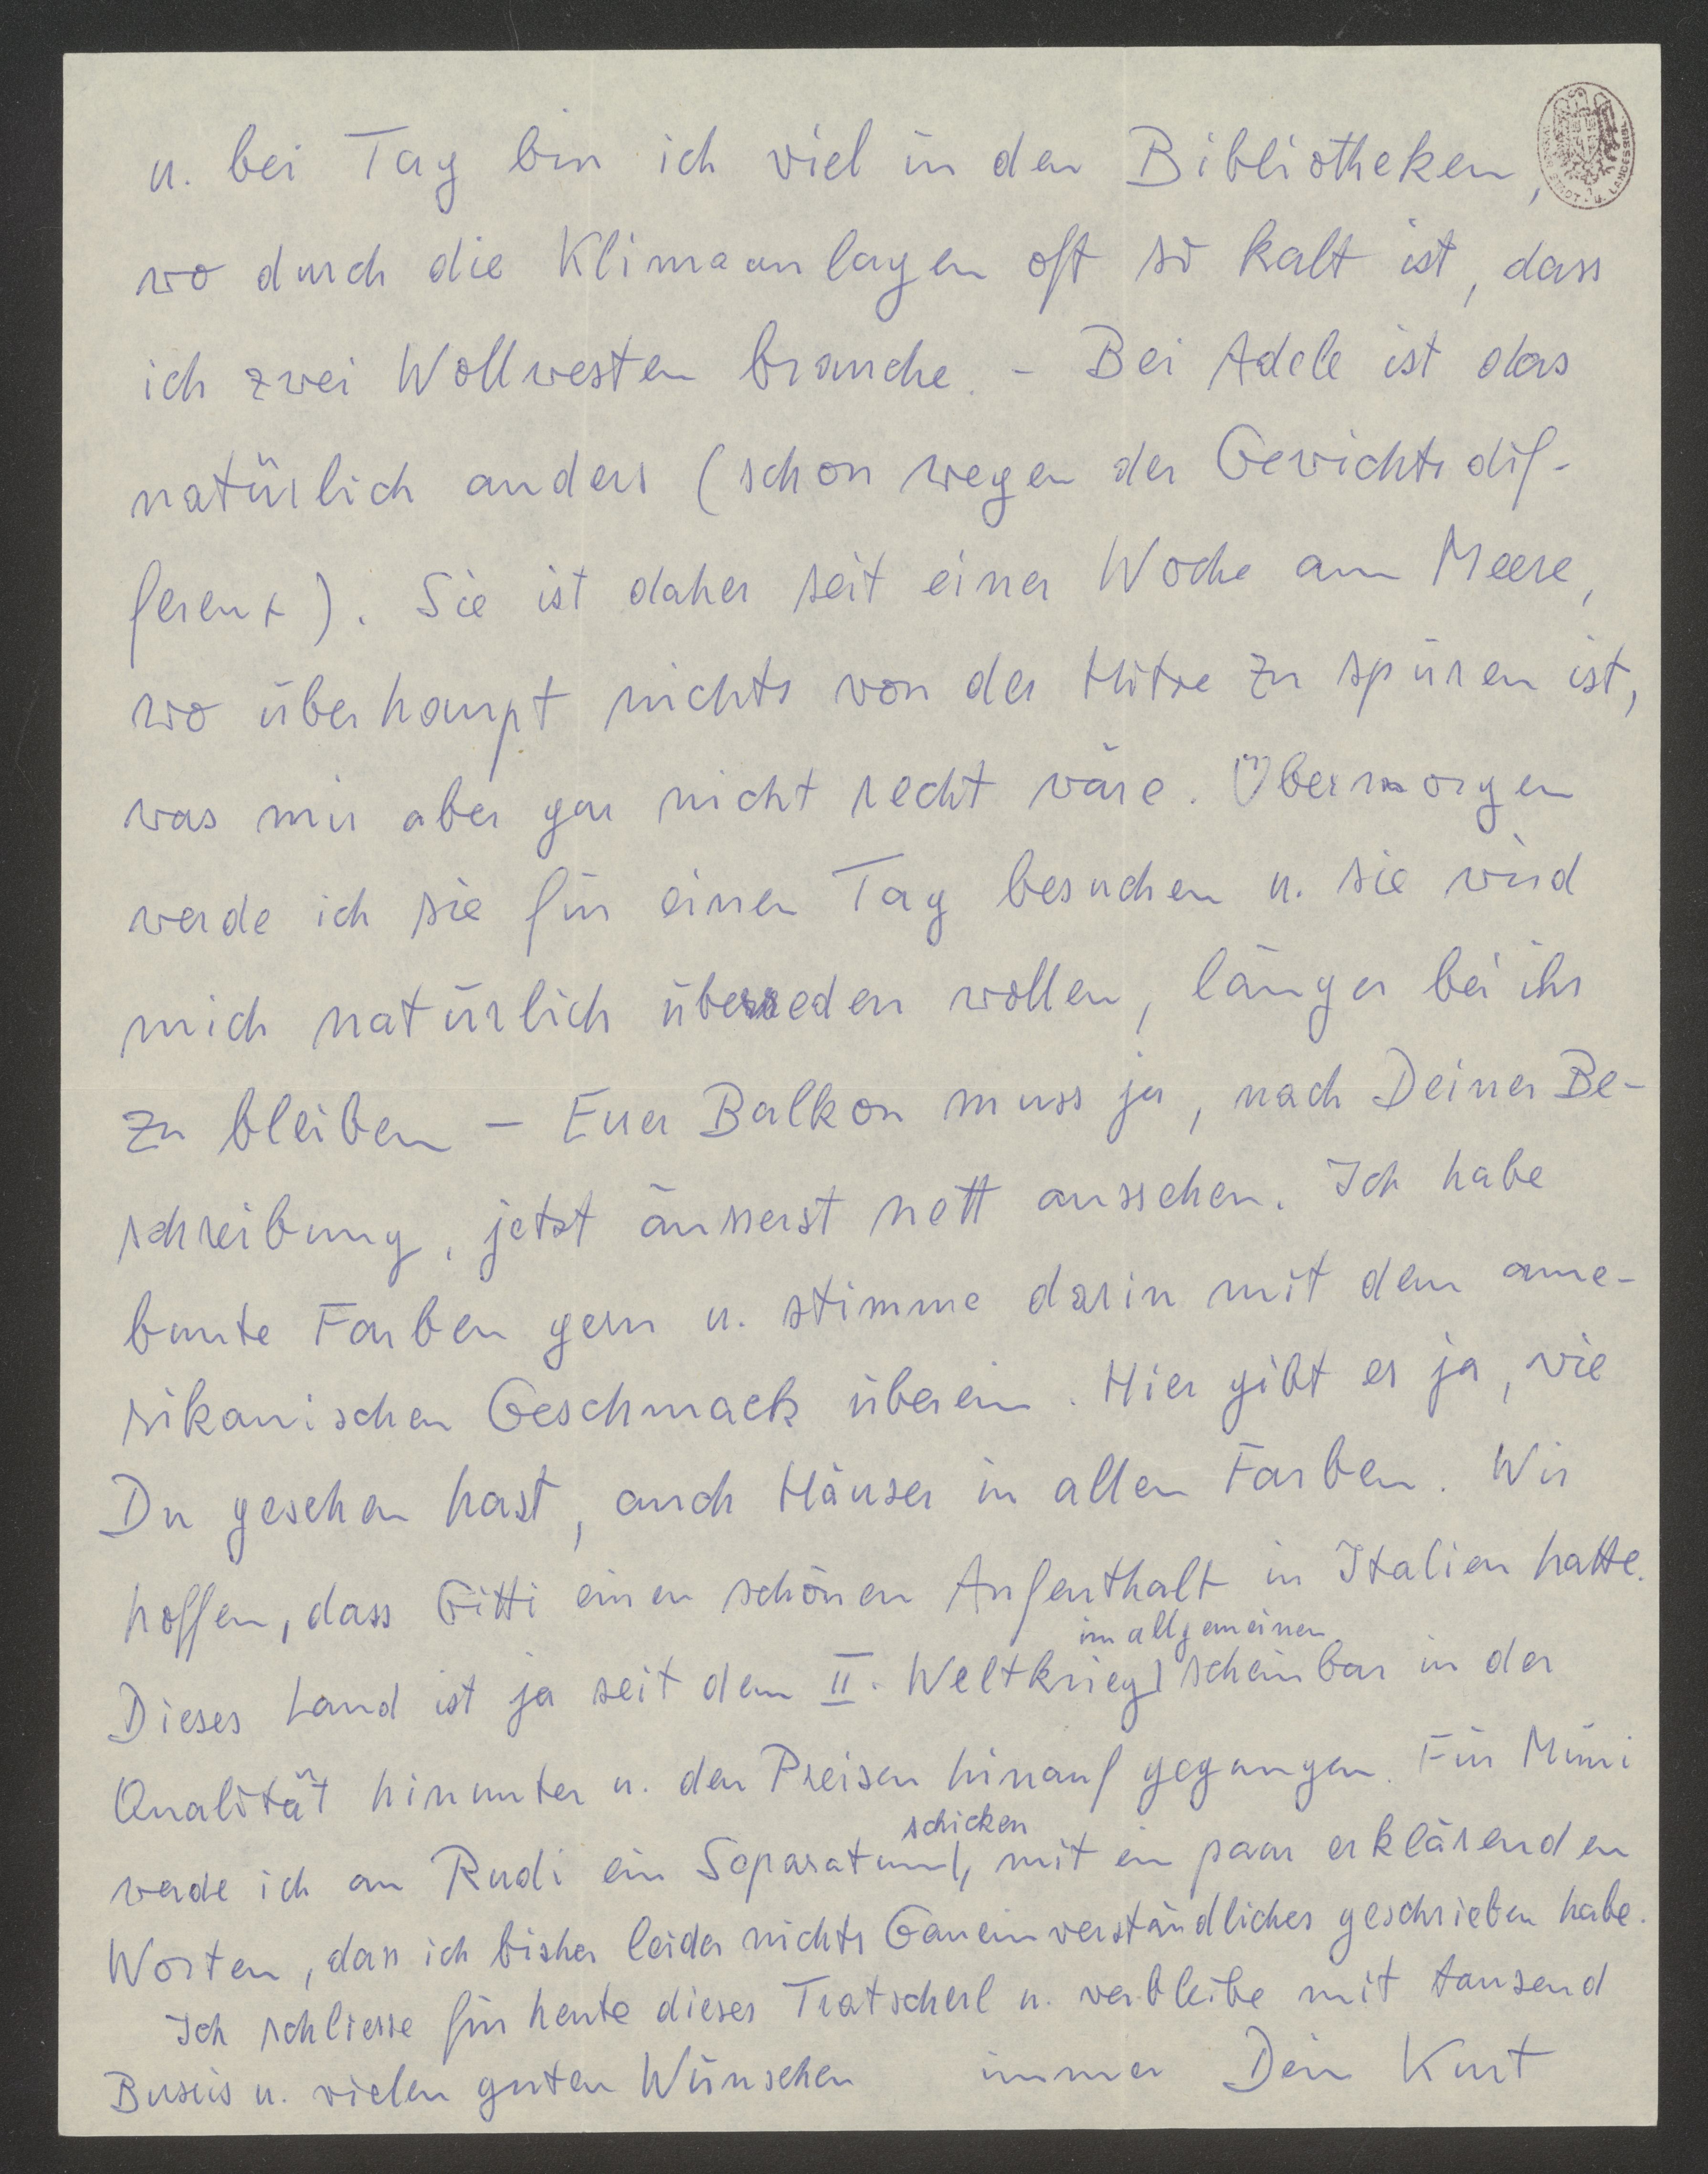 u. bei Tag bin ich viel in den Bibliotheken,
wo durch die Klimaanlagen oft so kalt ist, dass
ich zwei Wollwesten brauche. – Bei Adele ist das
natürlich anders (schon wegen der Gewichtsdif-
ferenz). Sie ist daher seit einer Woche am Meere,
wo überhaupt nichts von der Hitze zu spüren ist,
was mir aber gar nicht recht wäre. Übermorgen
werde ich sie für einen Tag besuchen u. sie wird
mich natürlich überreden wollen, länger bei ihr
zu bleiben – Euer Balkon muss ja, nach Deiner Be-
schreibung, jetzt äusserst nett aussehen. Ich habe
bunte Farben gern u. stimme darin mit dem ame-
rikanischen Geschmack überein. Hier gibt es ja, wie
Du gesehen hast, auch Häuser in allen Farben. Wir
hoffen, dass Gitti einen schönen Aufenthalt in Italien hatte.
im allgemeinen
Dieses Land ist ja seit dem II. Weltkrieg scheinbar in der
Qualität hinunter u. den Preisen hinauf gegangen. Für Mimi
schicken
werde ich an Rudi ein Separatum, mit ein paar erklärenden
Worten, dass ich bisher leider nichts Gemeinverständliches geschrieben habe.
Ich schliesse für heute dieses Tratscherl u. verbleibe mit tausend
Bussis u. vielen guten Wünschen immer Dein Kurt
STADT- U. LANDESBIB